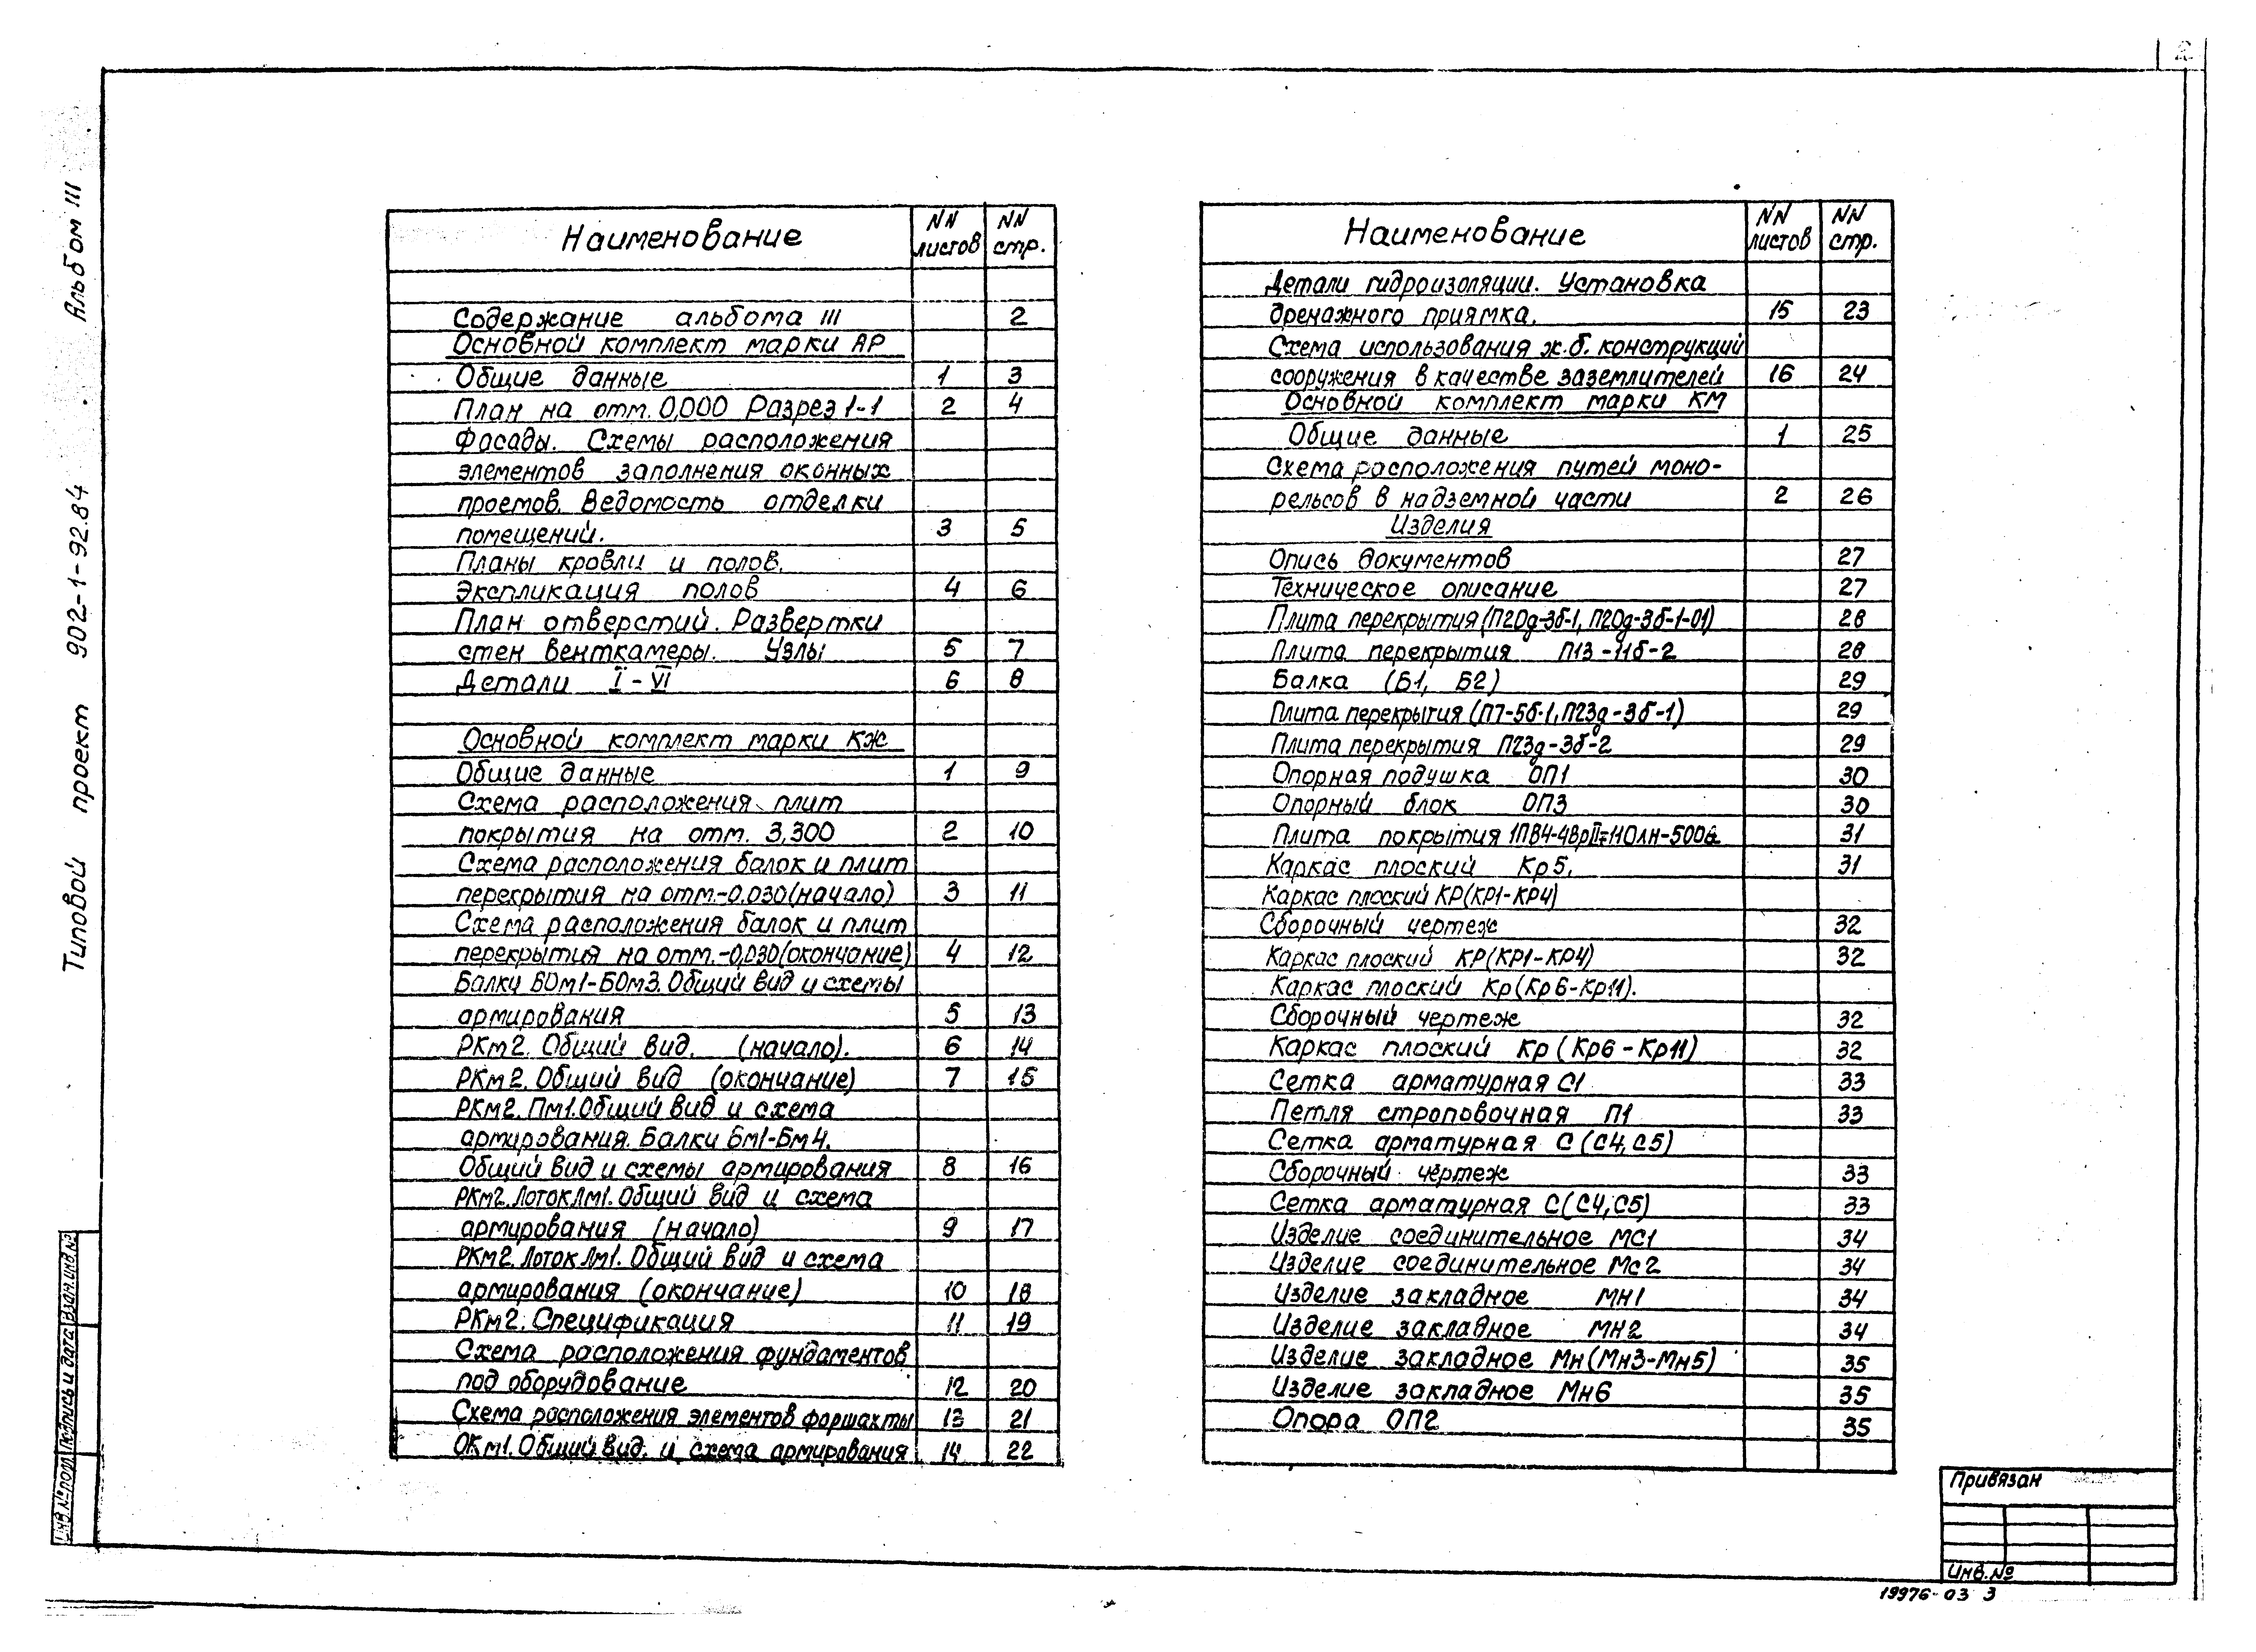 2
Типовой проект 902-1-92.84 Альбом III
Наименование NN листов NN стр.
Содержание альбома III 2
Основной комплект марки АР
Общие данные 1 3
План на отм. 0,000 Разрез 1-1 2 4
Фасады. Схемы расположения
элементов заполнения оконных
проемов. Ведомость отделки
помещений. 3 5
Планы кровли и полов.
Экспликация полов 4 6
План отверстий. Развертки
стен венткамеры. Узлы 5 7
Детали I - VI 6 8
Основной комплект марки КЖ
Общие данные 1 9
Схема расположения плит
покрытия на отм. 3,300 2 10
Схема расположения балок и плит
перекрытия на отм.-0,030 (начало) 3 11
Схема расположения балок и плит
перекрытия на отм.-0,030 (окончание) 4 12
Балки БОм1-БОм3. Общий вид и схемы
армирования 5 13
РКм2. Общий вид. (начало). 6 14
РКм2. Общий вид (окончание) 7 15
РКм2. Пм1. Общий вид и схема
армирования. Балки Бм1-Бм4.
Общий вид и схемы армирования 8 16
РКм2. Лоток Лм1. Общий вид и схема
армирования (начало) 9 17
РКм2. Лоток Лм1. Общий вид и схема
армирования (окончание) 10 18
РКм2. Спецификация 11 19
Схема расположения фундаментов
под оборудование 12 20
Схема расположения элементов форшахты 13 21
ОКм1. Общий вид. и схема армирования 14 22
Наименование NN листов NN стр.
Детали гидроизоляции. Установка
дренажного приямка. 15 23
Схема использования ж.б. конструкций
сооружения в качестве заземлителей 16 24
Основной комплект марки КМ
Общие данные 1 25
Схема расположения путей моно-
рельсов в надземной части 2 26
Изделия
Опись документов 27
Техническое описание 27
Плита перекрытия (П20д-3б-1, П20д-3б-1-01) 28
Плита перекрытия П13-11б-2 28
Балка (Б1, Б2) 29
Плита перекрытия (П7-5б-1, П23д-3б-1) 29
Плита перекрытия П23д-3б-2 29
Опорная подушка ОП1 30
Опорный блок ОП3 30
Плита покрытия 31
Каркас плоский Кр5. 31
Каркас плоский КР (КР1-КР4)
Сборочный чертеж 32
Каркас плоский КР (КР1-КР4) 32
Каркас плоский Кр (Кр6-Кр11).
Сборочный чертеж 32
Каркас плоский Кр (Кр6-Кр11) 32
Сетка арматурная С1 33
Петля строповочная П1 33
Сетка арматурная С (С4, С5)
Сборочный чертеж 33
Сетка арматурная С (С4, С5) 33
Изделие соединительное МС1 34
Изделие соединительное Мс2 34
Изделие закладное МН1 34
Изделие закладное МН2 34
Изделие закладное Мн (Мн3-Мн5) 35
Изделие закладное Мн6 35
Опора ОП2 35
Инв.№подл. Подпись и дата Взам.инв.№
Привязан
Инв.№
19976-03 3